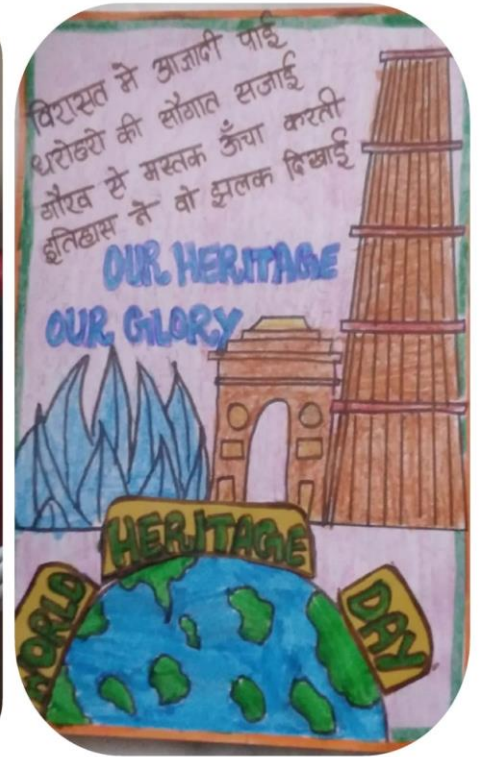 विरासत मे आज़ादी पाई
धरोहरो की सौगात सजाई
गौरव से मस्तक ऊँचा करती
इतिहास ने वो झलक दिखाई
OUR HERITAGE
OUR GLORY
WORLD HERITAGE DAY